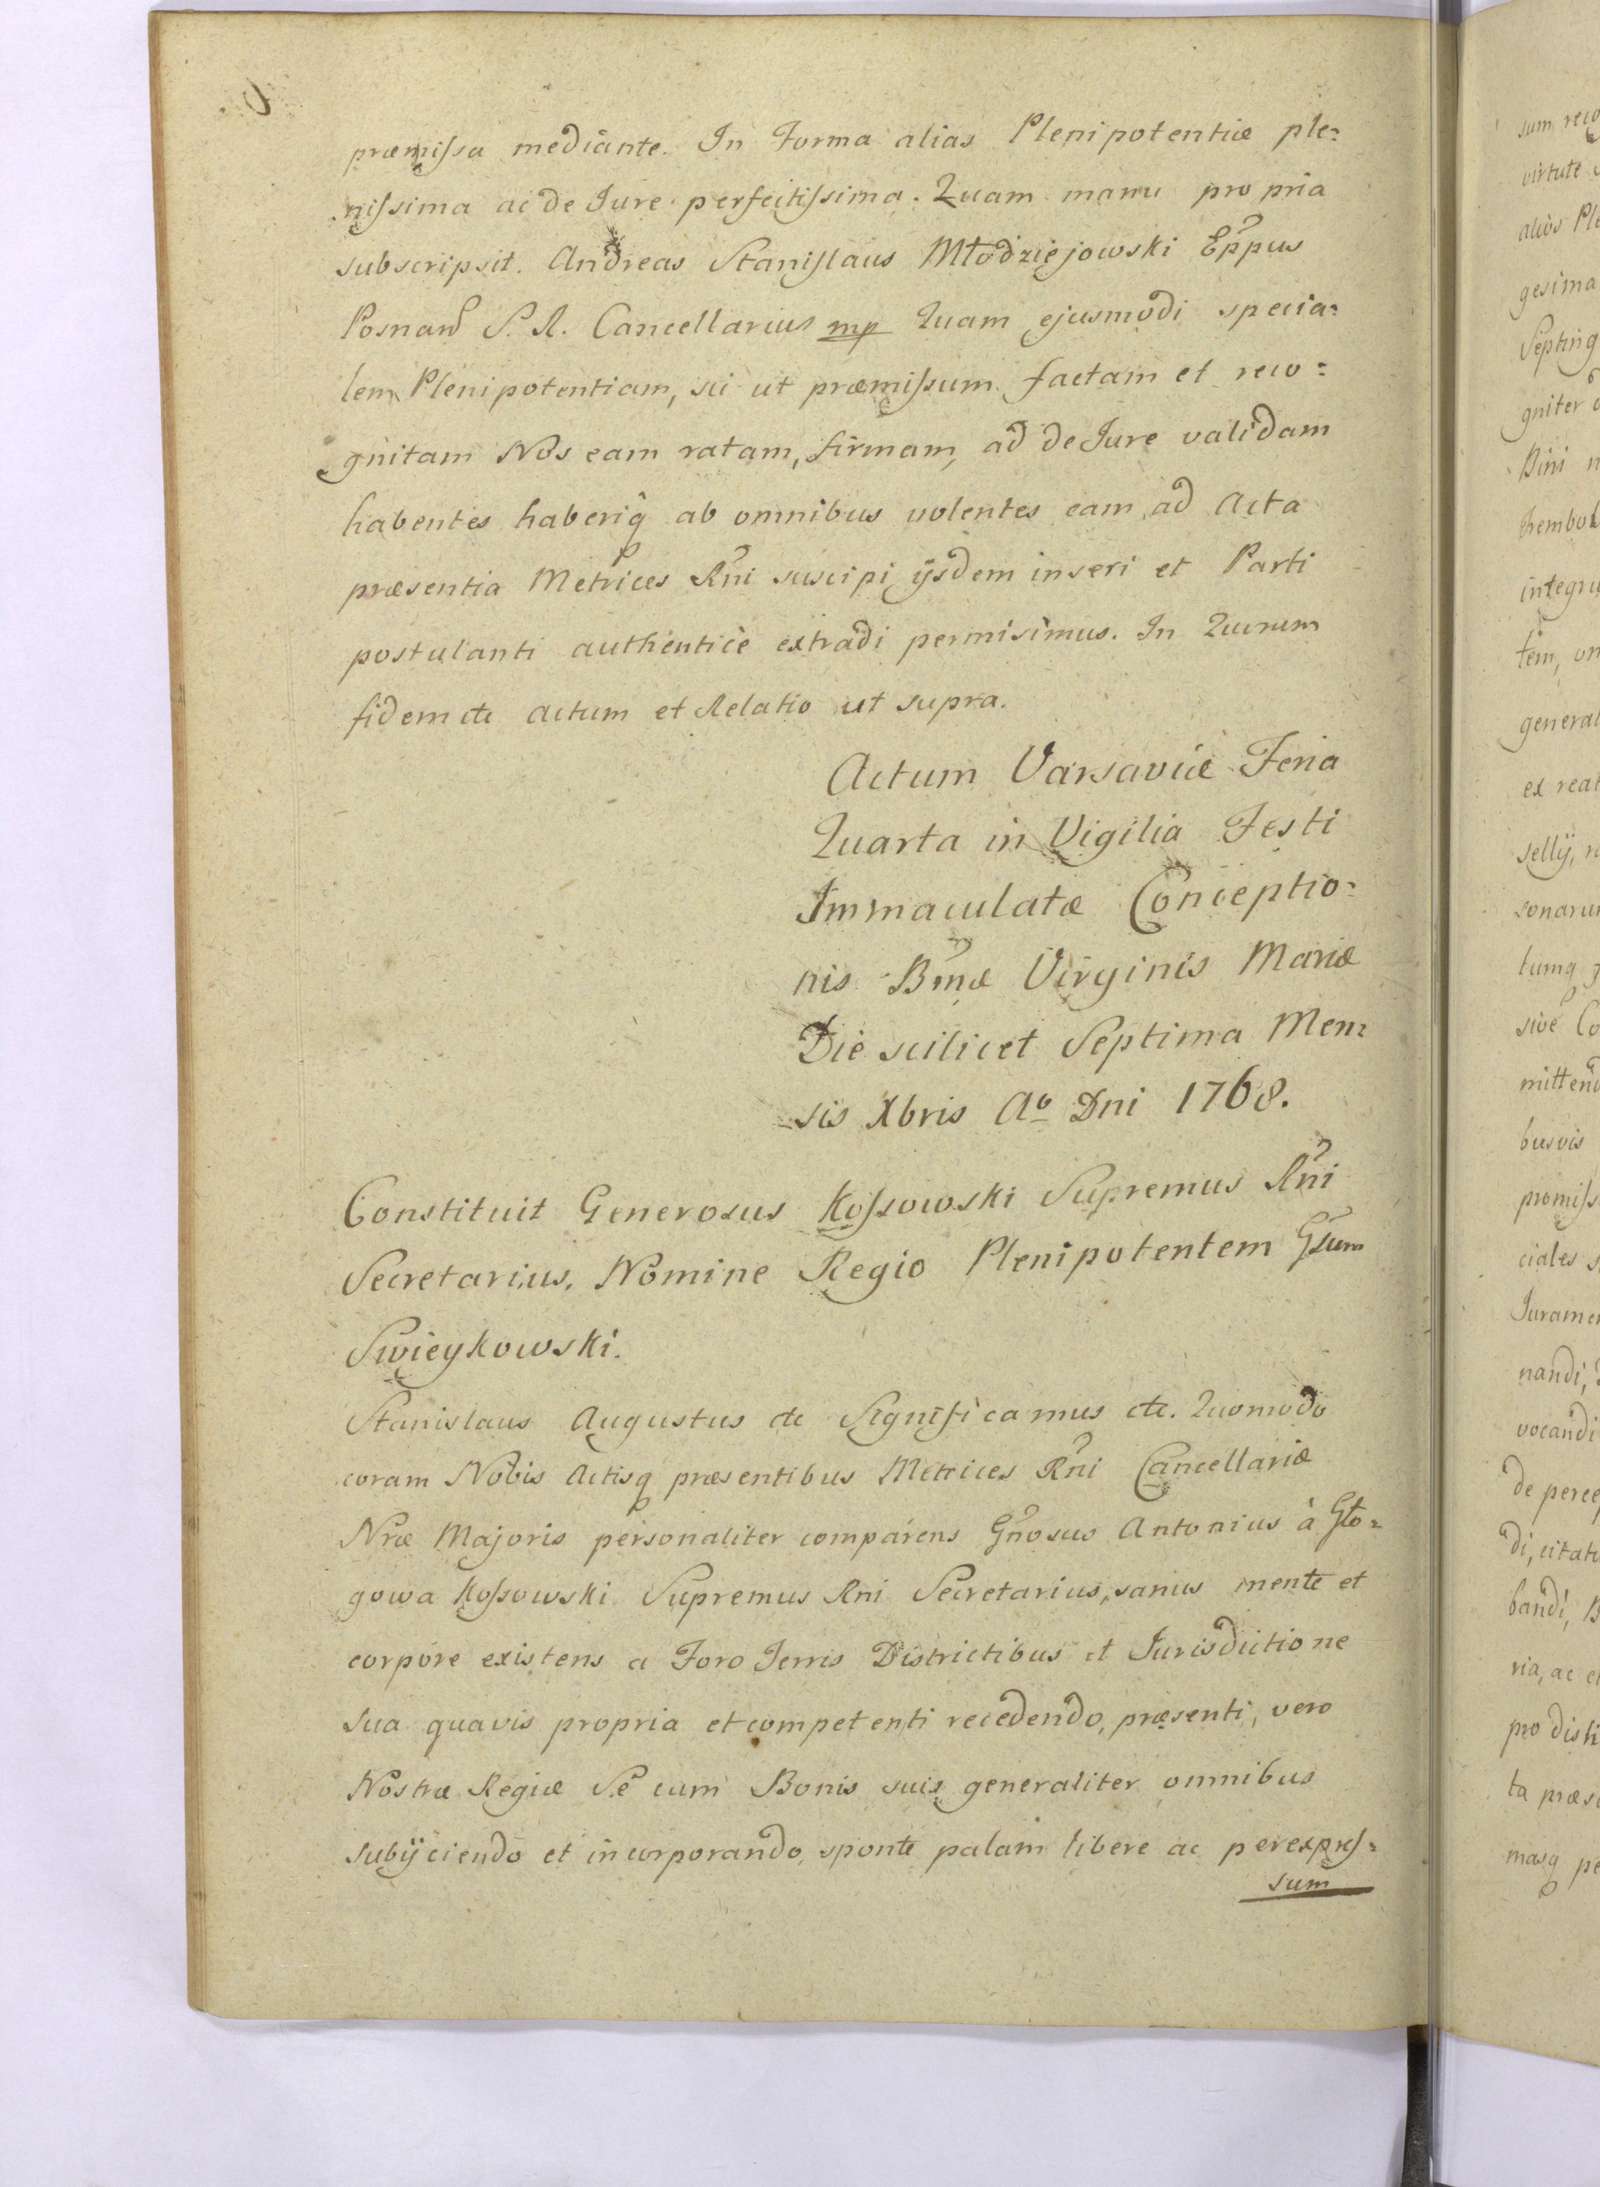 præmissa mediante. In Forma alias Plenipotentiæ ple=
nissima ac de Jure perfectissima. Quam manu propria
subscripsit. Andreas Stanislaus Młodziejowski Eppus
Posnan S. R. Cancellarius mp Quam ejusmodi specia=
lem Plenipotentiam, sic ut præmissum factam et reco=
gnitam Nos eam ratam, firmam, ad de Jure validam
habentes haberiq ab omnibus volentes eam ad Acta
præsentia Metrices Rni suscipi ijsdem inseri et Parti
postulanti authenticè extradi permisimus. In Quorum
fidem etc Actum et Relatio ut supra.
Actum Varsaviæ Feria
Quarta in Vigilia Festi
Immaculatæ Conceptio=
nis Bmæ Virginis Mariæ
Die scilicet Septima Men=
sis Xbris Ao Dni 1768.
Constituit Generosus Kossowski Supremus Rni
Secretarius, Nomine Regio Plenipotentem Gsum
Swieykowski.
Stanislaus Augustus etc Significamus etc. Quomodo
coram Nobis Actisq præsentibus Metrices Rni Cancellariæ
Nræ Majoris personaliter comparens Gnosus Antonius à Gło=
gowa Kossowski Supremus Rni Secretarius, sanus mente et
corpore existens a Foro Terris Districtibus et Jurisdictione
sua quavis propria et competenti recedendo, præsenti, vero
Nostræ Regiæ Se cum Bonis suis generaliter omnibus
subijciendo et incorporando, sponte palam libere ac perexpres=
sum
sum reco
virtute
alios Ple
gesima
Septing
gniter
Bini
integru
tem, om
general
ex reat
sonarum
tumq
sive Co
mittend
busvis
promiss
ciales
Juramen
nandi,
vocandi
de percep
di, citat
bandi, B
ria, ac et
pro disti
ta præs
masq pe